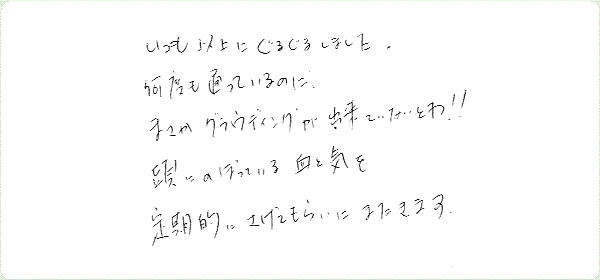 いつも以上にぐるぐるしました。
何度も通っているのに、
まさか グラウディングが 出来ていないとわ!!
頭にのぼっている 血と気を
定期的に さげてもらいに またきます。